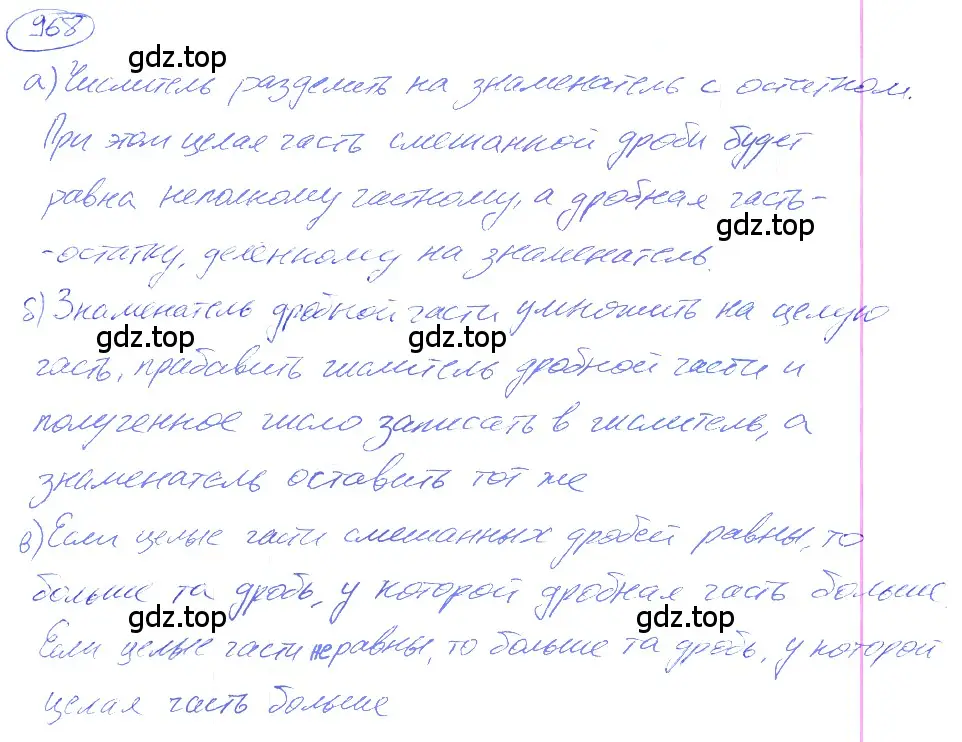 968
gdz.top
а) Числитель разделить на знаменатель с остатком.
При этом целая часть смешанной дроби будет
равна неполному частному, а дробная часть-
gdz.top
-остатку, делённому на знаменатель.
б) Знаменатель дробной части умножить на целую
gdz.top gdz.top
часть, прибавить числитель дробной части и
полученное число записать в числитель, а
знаменатель оставить тот же
в) Если целые части смешанных дробей равны, то
больше та дробь, у которой дробная часть больше.
gdz.top gdz.top
Если целые части не равны, то больше та дробь, у которой
целая часть больше